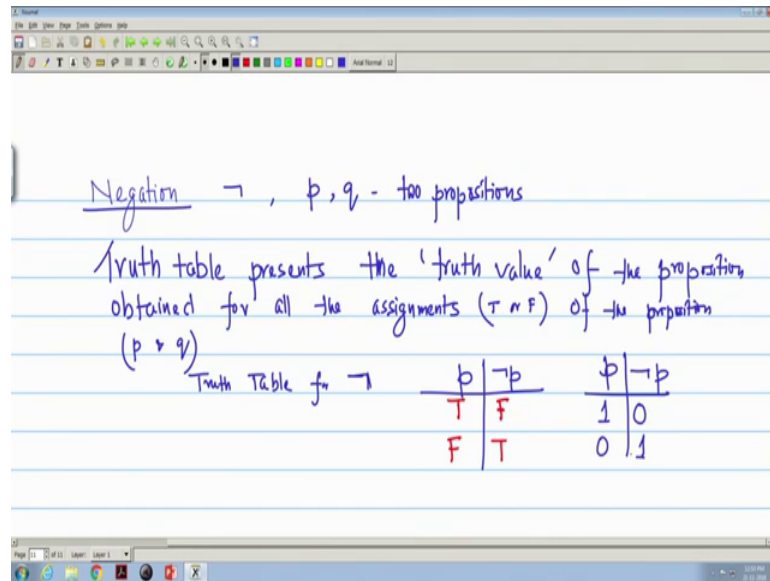 Journal
File Edit View Page Tools Options Help
Arial Normal 12
Negation ¬ , p, q - two propositions
Truth table presents the 'truth value' of the proposition
obtained for all the assignments (T or F) of the proposition
(p & q)
Truth Table for ¬
p | ¬p p | ¬p
T | F 1 | 0
F | T 0 | 1
Page 11 of 11 Layer: Layer 1